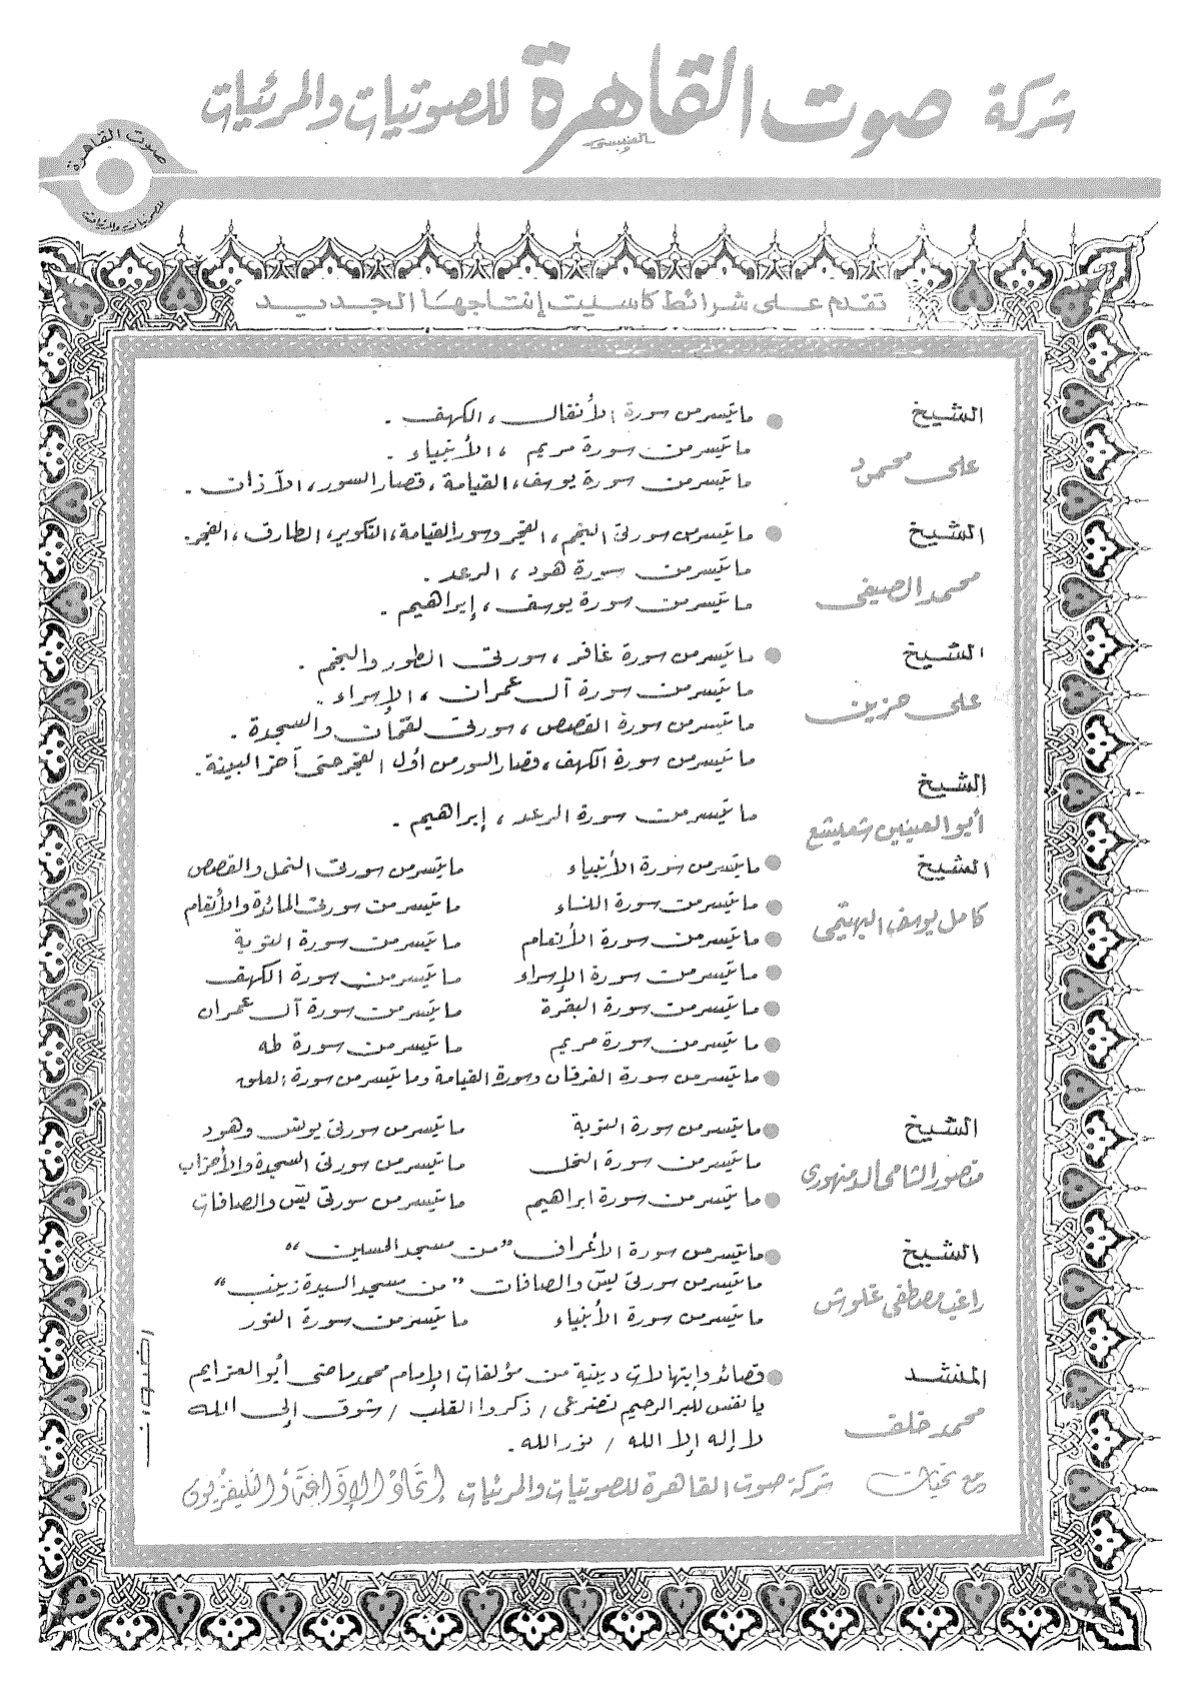 شركة صوت القاهرة للصوتيات والمرئيات
صوت القاهرة
للصوتيات والمرئيات
تقدم على شرائط كاسيت إنتاجها الجديد
الشيخ
على محمود
ما تيسر من سورة الأنفال ، الكهف .
ما تيسر من سورة مريم ، الأنبياء .
ما تيسر من سورة يوسف ، القيامة ، قصار السور ، الآذان .
الشيخ
محمد الصيفى
ما تيسر من سورتى النجم ، الفجر وسور القيامة ، التكوير ، الطارق ، الفجر .
ما تيسر من سورة هود ، الرعد .
ما تيسر من سورة يوسف ، إبراهيم .
الشيخ
على حزين
ما تيسر من سورة غافر ، سورتى الطور والنجم .
ما تيسر من سورة آل عمران ، الإسراء .
ما تيسر من سورة القصص ، سورتى لقمان والسجدة .
ما تيسر من سورة الكهف ، قصار السور من أول الفجر حتى آخر البينة .
الشيخ
أبو العينين شعيشع
ما تيسر من سورة الرعد ، إبراهيم .
الشيخ
كامل يوسف البهتيمى
ما تيسر من سورة الأنبياء ما تيسر من سورتى النمل والقصص
ما تيسر من سورة النساء ما تيسر من سورتى المائدة والأنعام
ما تيسر من سورة الأنعام ما تيسر من سورة التوبة
ما تيسر من سورة الإسراء ما تيسر من سورة الكهف
ما تيسر من سورة البقرة ما تيسر من سورة آل عمران
ما تيسر من سورة مريم ما تيسر من سورة طه
ما تيسر من سورة الفرقان وسورة القيامة وما تيسر من سورة العلق
الشيخ
منصور الشامى الدمنهورى
ما تيسر من سورة التوبة ما تيسر من سورتى يونس وهود
ما تيسر من سورة النحل ما تيسر من سورتى السجدة والأحزاب
ما تيسر من سورة ابراهيم ما تيسر من سورتى يس والصافات
الشيخ
راغب مصطفى غلوش
ما تيسر من سورة الأعراف "من مسجد الحسين"
ما تيسر من سورتى يس والصافات "من مسجد السيدة زينب"
ما تيسر من سورة الأنبياء ما تيسر من سورة النور
المنشد
محمد خلف
قصائد وابتهالات دينية من مؤلفات الإمام محمد ماضى أبو العزايم
يا نفس للبر الرحيم تضرعى / ذكروا القلب / شوق إلى الله
لا إله إلا الله / نور الله .
مع تحيات شركة صوت القاهرة للصوتيات والمرئيات إتحاد الإذاعة والتليفزيون